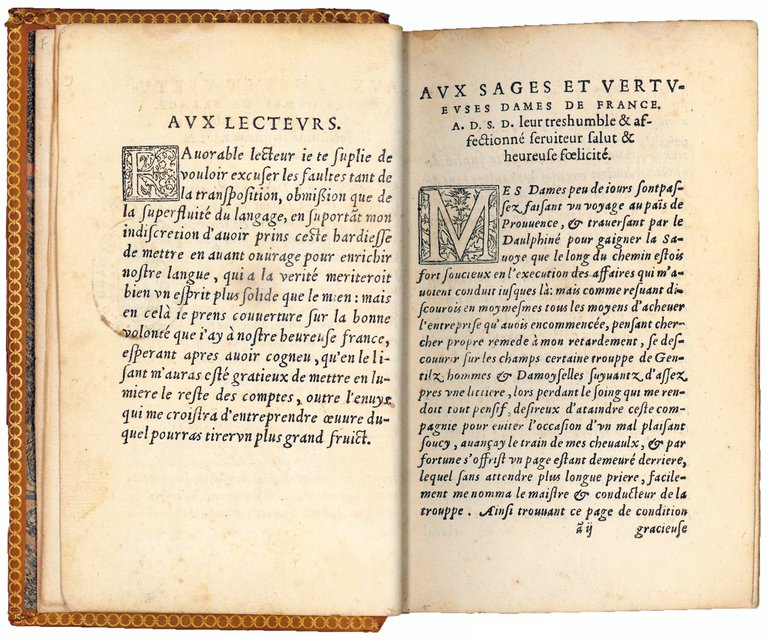 AVX LECTEVRS.
FAuorable lecteur ie te suplie de
vouloir excuser les faultes tant de
la transposition, obmißion que de
la superfluité du langage, en suportãt mon
indiscretion d'auoir prins ceste hardiesse
de mettre en auant ouurage pour enrichir
nostre langue, qui a la verité meriteroit
bien vn esprit plus solide que le mien: mais
en celà ie prens couuerture sur la bonne
volonté que i'ay à nostre heureuse france,
esperant apres auoir cogneu, qu'en le li-
sant m'auras esté gratieux de mettre en lu-
miere le reste des comptes, outre l'enuye
qui me croistra d'entreprendre œuure du-
quel pourras tirer vn plus grand fruict.
AVX SAGES ET VERTV-
EVSES DAMES DE FRANCE.
A. D. S. D. leur treshumble & af-
fectionné seruiteur salut &
heureuse fœlicité.
MES Dames peu de iours sont pas-
sez faisant vn voyage au païs de
Prouuence, & trauersant par le
Daulphiné pour gaigner la Sa-
uoye que le long du chemin estois
fort soucieux en l'execution des affaires qui m'a-
uoient conduit iusques là: mais comme resuant di-
scourois en moymesmes tous les moyens d'acheuer
l'entreprise qu'auois encommencée, pensant cher-
cher propre remede à mon retardement, se des-
couurir sur les champs certaine trouppe de Gen-
tilz hommes & Damoyselles suyuantz d'assez
pres vne lictiere, lors perdant le soing qui me ren-
doit tout pensif, desireux d'ataindre ceste com-
pagnie pour euiter l'occasion d'vn mal plaisant
soucy, auançay le train de mes cheuaulx, & par
fortune s'offrist vn page estant demeuré derriere,
lequel sans attendre plus longue priere, facile-
ment me nomma le maistre & conducteur de la
trouppe. Ainsi trouuant ce page de condition
ã ij gracieuse